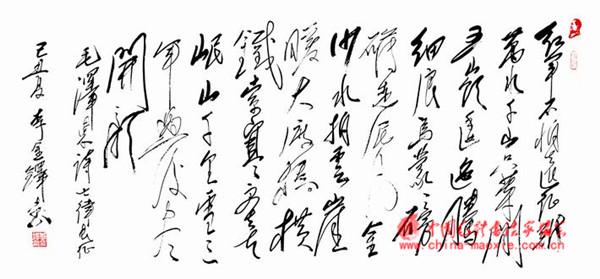 红军不怕远征难
萬水千山只等闲
五岭逶迤腾
细浪乌蒙磅
礴走泥丸金
沙水拍云崖
暖大渡桥横
鐵索寒更喜
岷山千里雪三
军过后尽
開颜
毛澤东诗七律长征
己丑夏 李金鐸书
www.china-maoxie.com